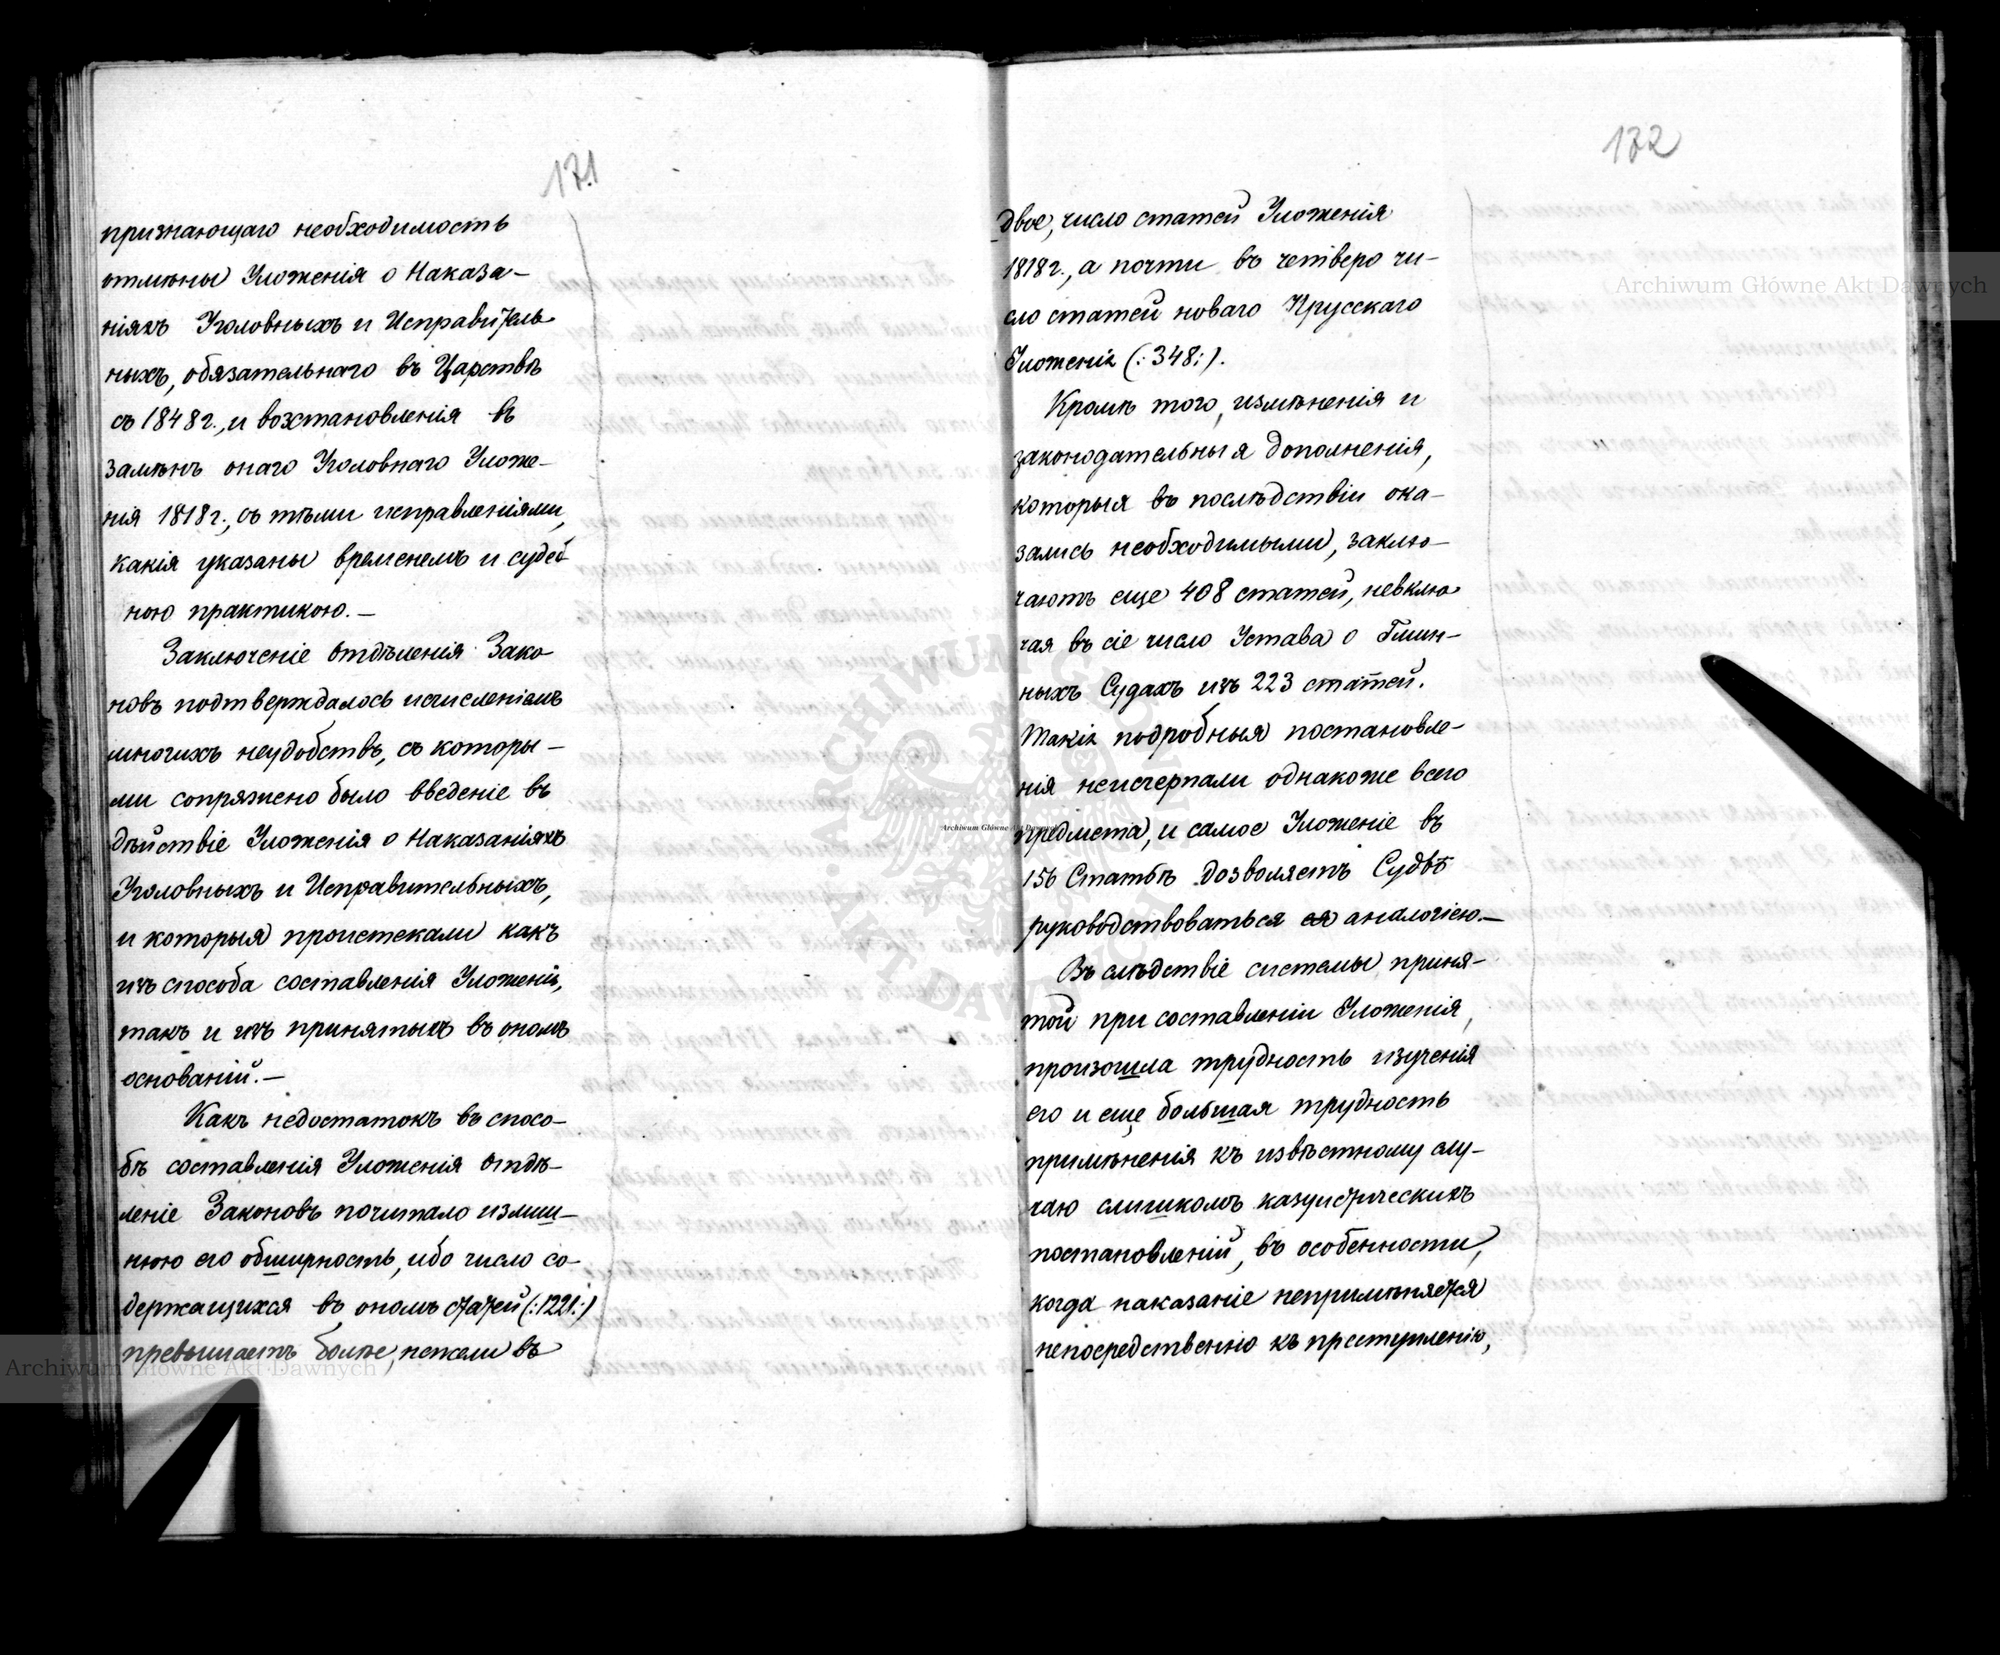 171
признающаго необходимость
отмѣны Уложенія о Наказа-
ніяхъ Уголовныхъ и Исправитель-
ныхъ, обязательнаго въ Царствѣ
съ 1848 г., и возстановленія въ
замѣнъ онаго Уголовнаго Уложе-
нія 1818 г., съ тѣми исправленіями,
какія указаны временемъ и судеб
ною практикою.—
Заключеніе Отдѣленія Зако
новъ подтверждалось исчисленіемъ
многихъ неудобствъ, съ которы-
ми сопряжено было введеніе въ
дѣйствіе Уложенія о Наказаніяхъ
Уголовныхъ и Исправительныхъ,
и которыя проистекали какъ
изъ способа составленія Уложенія,
такъ и изъ принятыхъ въ ономъ
основаній.—
Какъ недостатокъ въ спосо-
бѣ составленія Уложенія Отдѣ-
леніе Законовъ почитало излиш-
нюю его обширность, ибо число со-
держащихся въ ономъ статей (:1221:)
превышаетъ болѣе, нежели въ
172
двое, число статей Уложенія
1818 г., а почти въ четверо чи-
сло статей новаго Прусскаго
Уложенія (:348:).
Кромѣ того, измѣненія и
законодательныя дополненія,
которыя въ послѣдствіи ока-
зались необходимыми, заклю-
чаютъ еще 408 статей, невклю
чая въ сіе число Устава о Гмин-
ныхъ Судахъ изъ 223 статей.
Такія подробныя постановле-
нія неисчерпали однакоже всего
предмета, и самое Уложеніе въ
156 Статьѣ дозволяетъ Судьѣ
руководствоваться ея аналогіею.—
Въ слѣдствіе системы, приня-
той при составленіи Уложенія,
произошла трудность изученія
его и еще большая трудность
примѣненія къ извѣстному слу-
чаю слишкомъ казуистическихъ
постановленій, въ особенности,
когда наказаніе непримѣняется
непосредственно къ преступленію,
Archiwum Główne Akt Dawnych
Archiwum Główne Akt Dawnych
Archiwum Główne Akt Dawnych